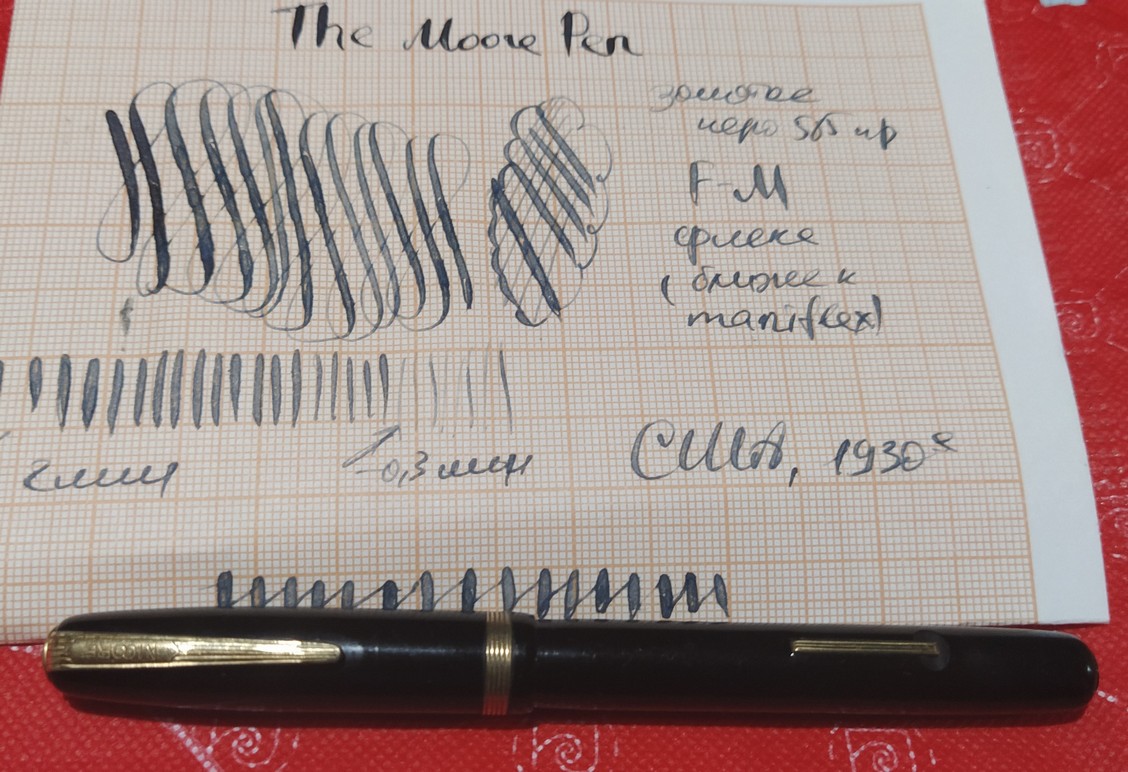 The Moore Pen
золотое
перо 585 пр
F-M
флекс
(ближе к
maniflex)
2мм
~0,3 мм
США, 1930е
MOORE